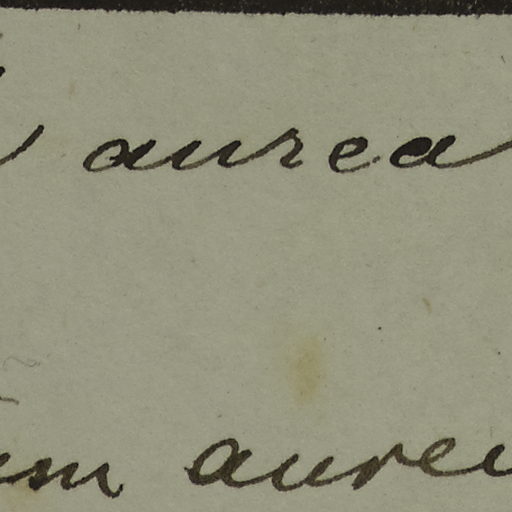 aurea
um aureu